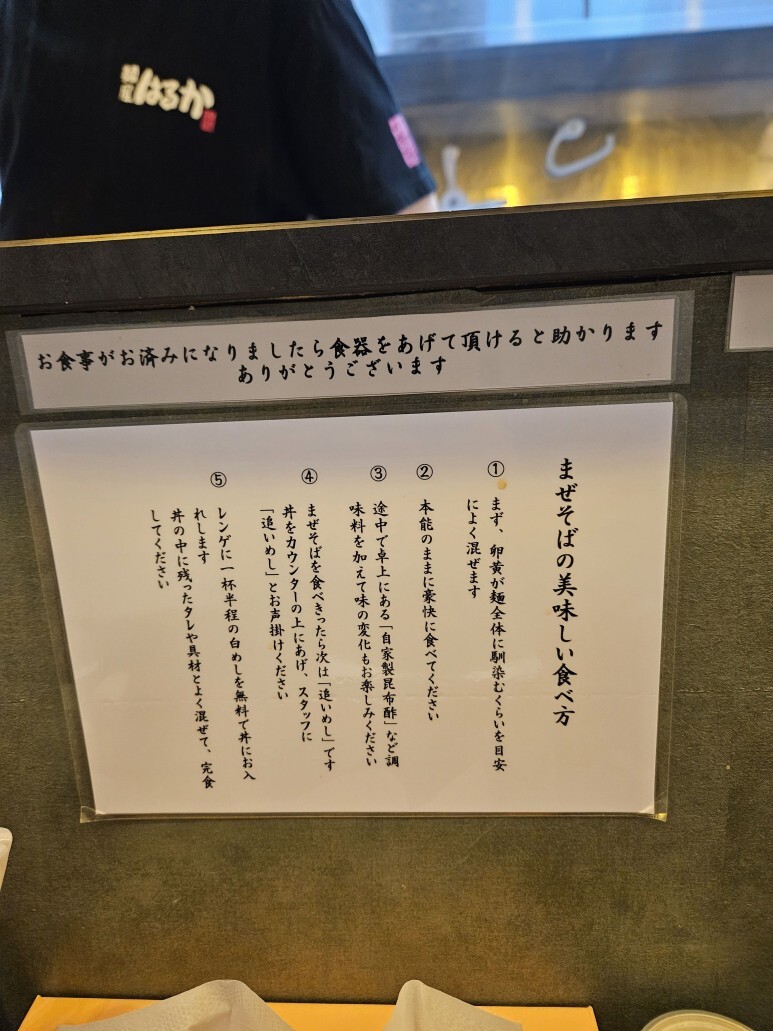 麺屋はるか
お食事がお済みになりましたら食器をあげて頂けると助かります
ありがとうございます
まぜそばの美味しい食べ方
① まず、卵黄が麺全体に馴染むくらいを目安
によく混ぜます
② 本能のままに豪快に食べてください
③ 途中で卓上にある「自家製昆布酢」など調
味料を加えて味の変化もお楽しみください
④ まぜそばを食べきったら次は「追いめし」です
丼をカウンターの上にあげ、スタッフに
「追いめし」とお声掛けください
⑤ レンゲに一杯半程の白めしを無料で丼にお入
れします
丼の中に残ったタレや具材とよく混ぜて、完食
してください